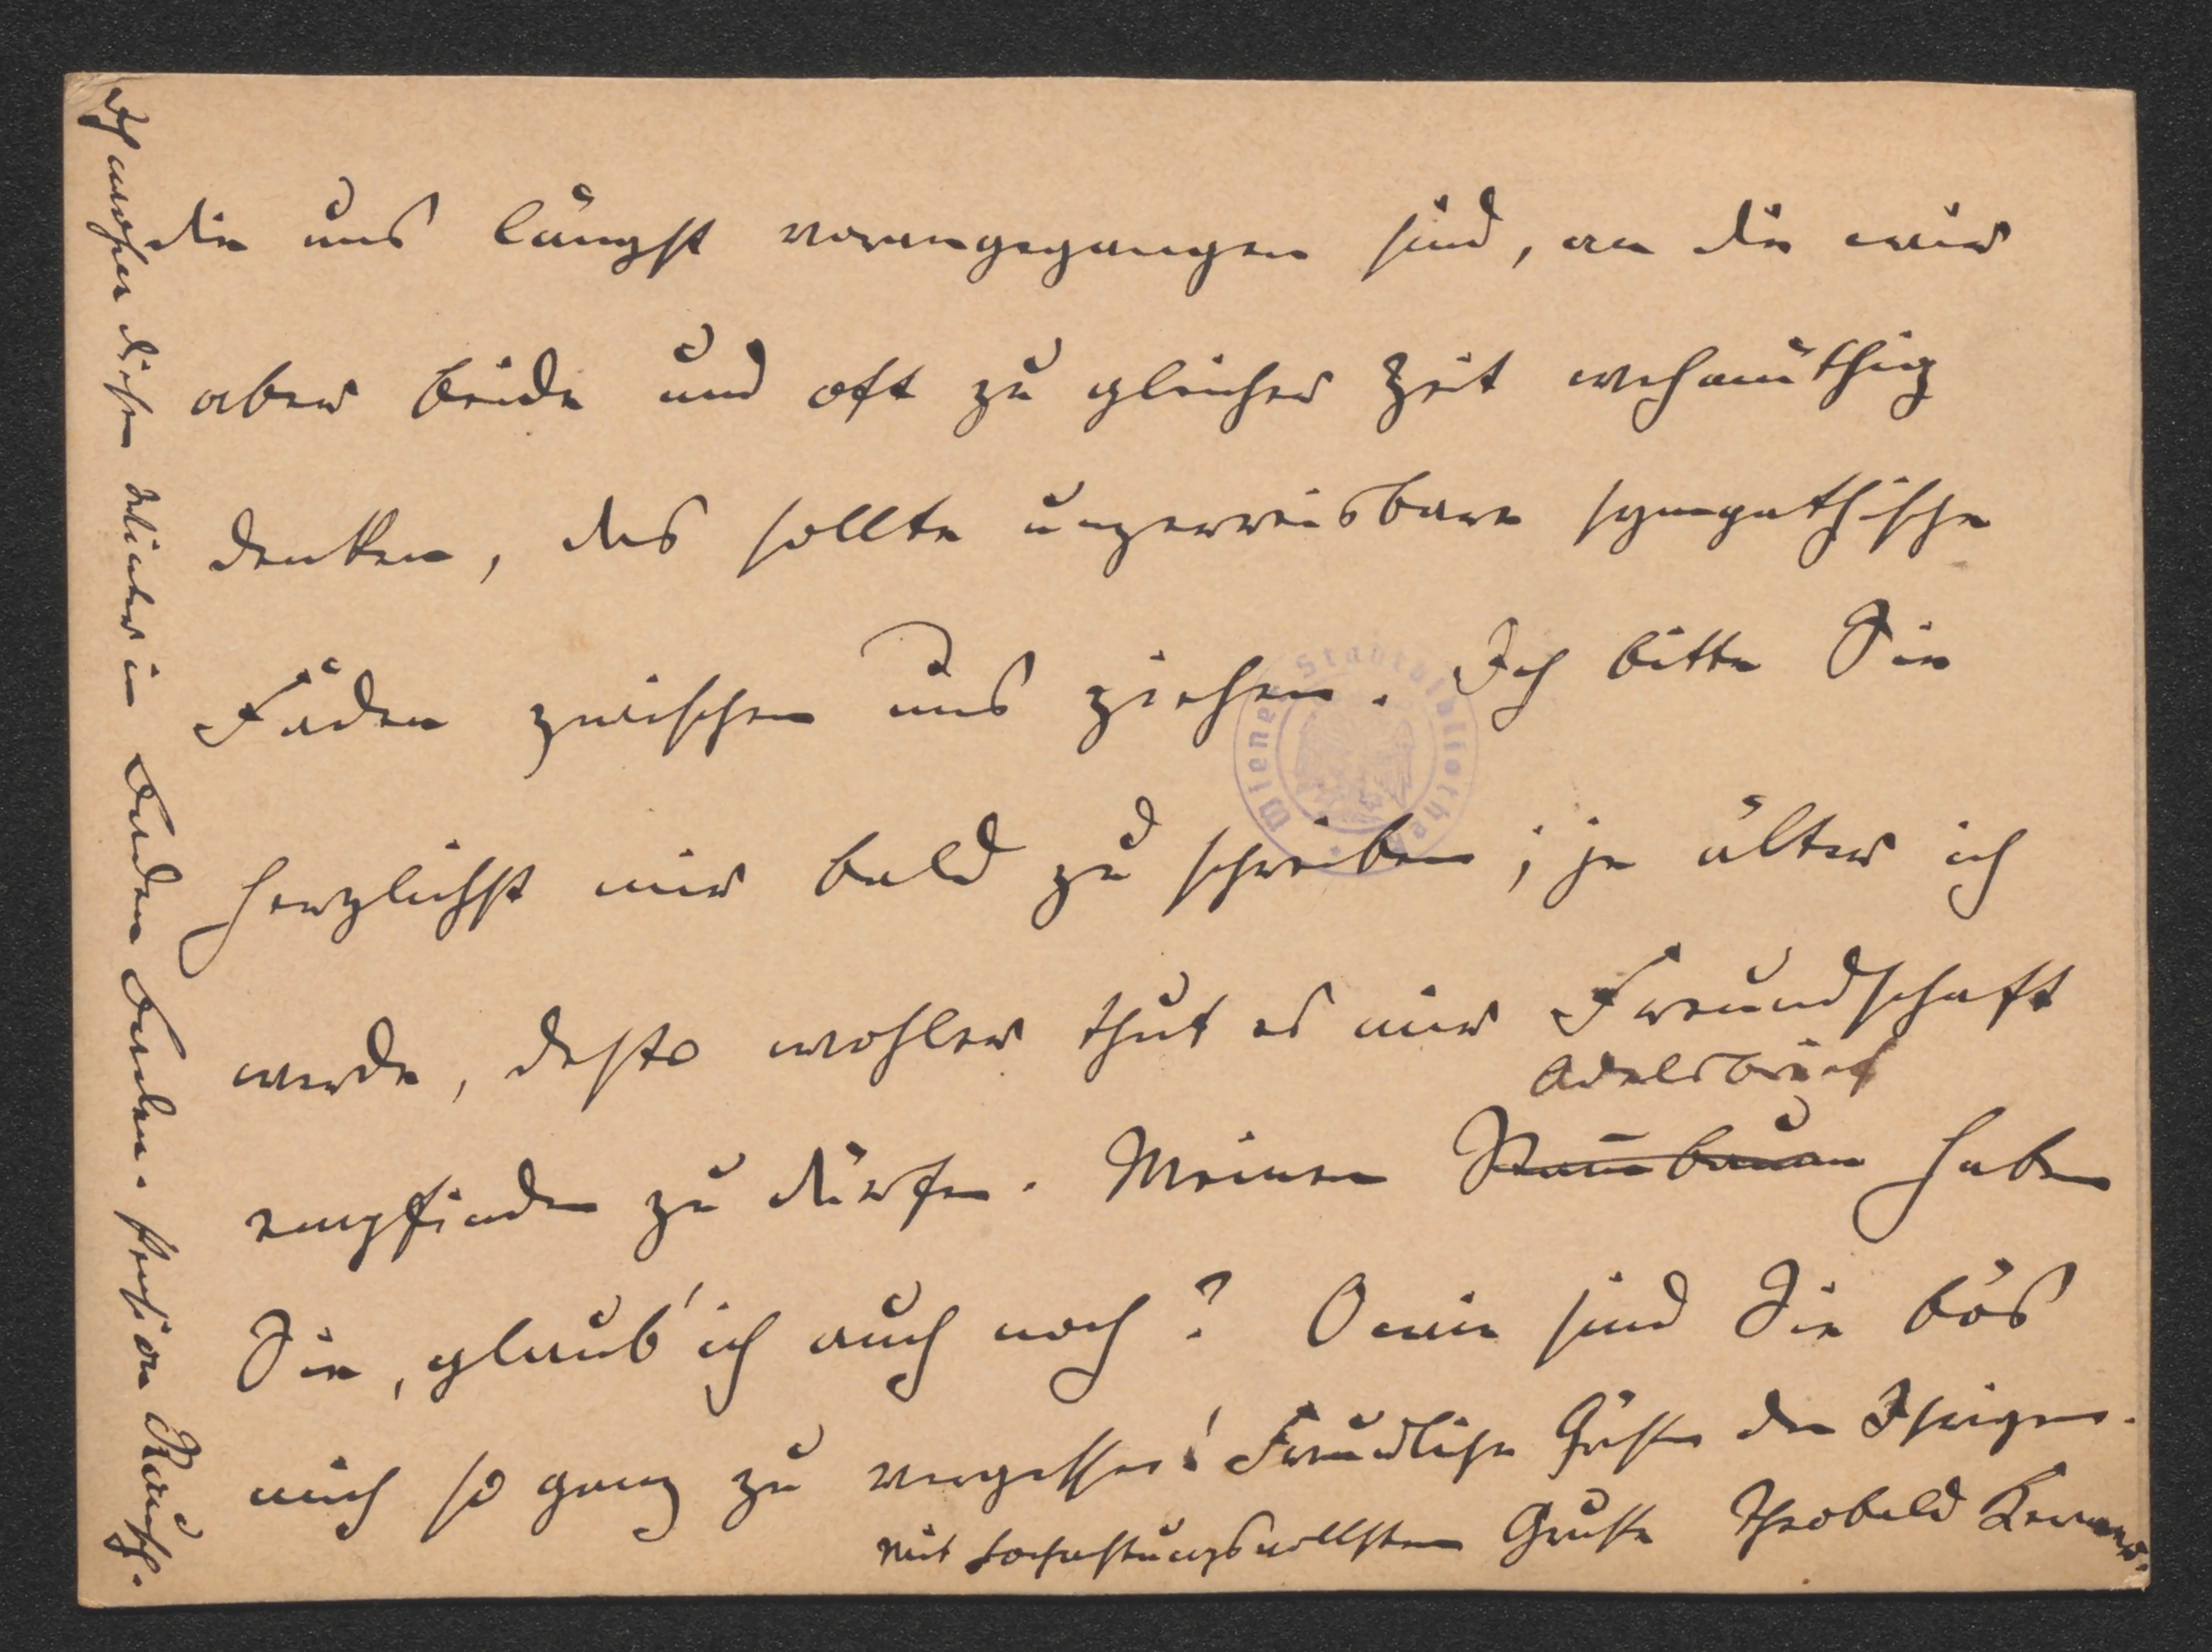 die uns längst vorangegangen sind, an die wir
aber beide und oft zu gleicher Zeit wehmüthig
denken, das sollte unzerreisbare sympathische
Fäden zwischen uns ziehen. Ich bitte Sie
herzlichst mir bald zu schreiben; je älter ich
werde, desto wohler thut es mir Freundschaft
Adelsbrief
empfinden zu dürfen. Meinen Stam̅baum haben
Sie, glaub' ich auch noch? O wie sind Sie bös
mich so ganz zu vergessen! Freundliche Grüße den Ihrigen.
Mit hochachtungsvollstem Gruße Theobald Kerner.
Ich wohne diesen Winter in Baden Baden. Pension
Wiener Stadtbibliothek